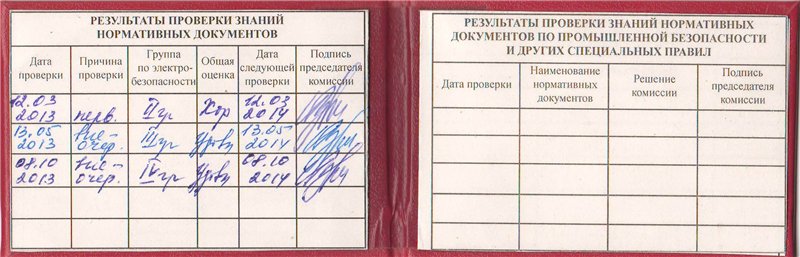 РЕЗУЛЬТАТЫ ПРОВЕРКИ ЗНАНИЙ
НОРМАТИВНЫХ ДОКУМЕНТОВ
Дата проверки
Причина проверки
Группа по электро-безопасности
Общая оценка
Дата следующей проверки
Подпись председателя комиссии
12.03 2013 перв. II гр Хор 12.03 2014
13.05 2013 Вне-очер. III гр Удовл 13.05 2014
08.10 2013 Вне-очер. IV гр Удовл 08.10 2014
РЕЗУЛЬТАТЫ ПРОВЕРКИ ЗНАНИЙ НОРМАТИВНЫХ
ДОКУМЕНТОВ ПО ПРОМЫШЛЕННОЙ БЕЗОПАСНОСТИ
И ДРУГИХ СПЕЦИАЛЬНЫХ ПРАВИЛ
Дата проверки
Наименование нормативных документов
Решение комиссии
Подпись председателя комиссии